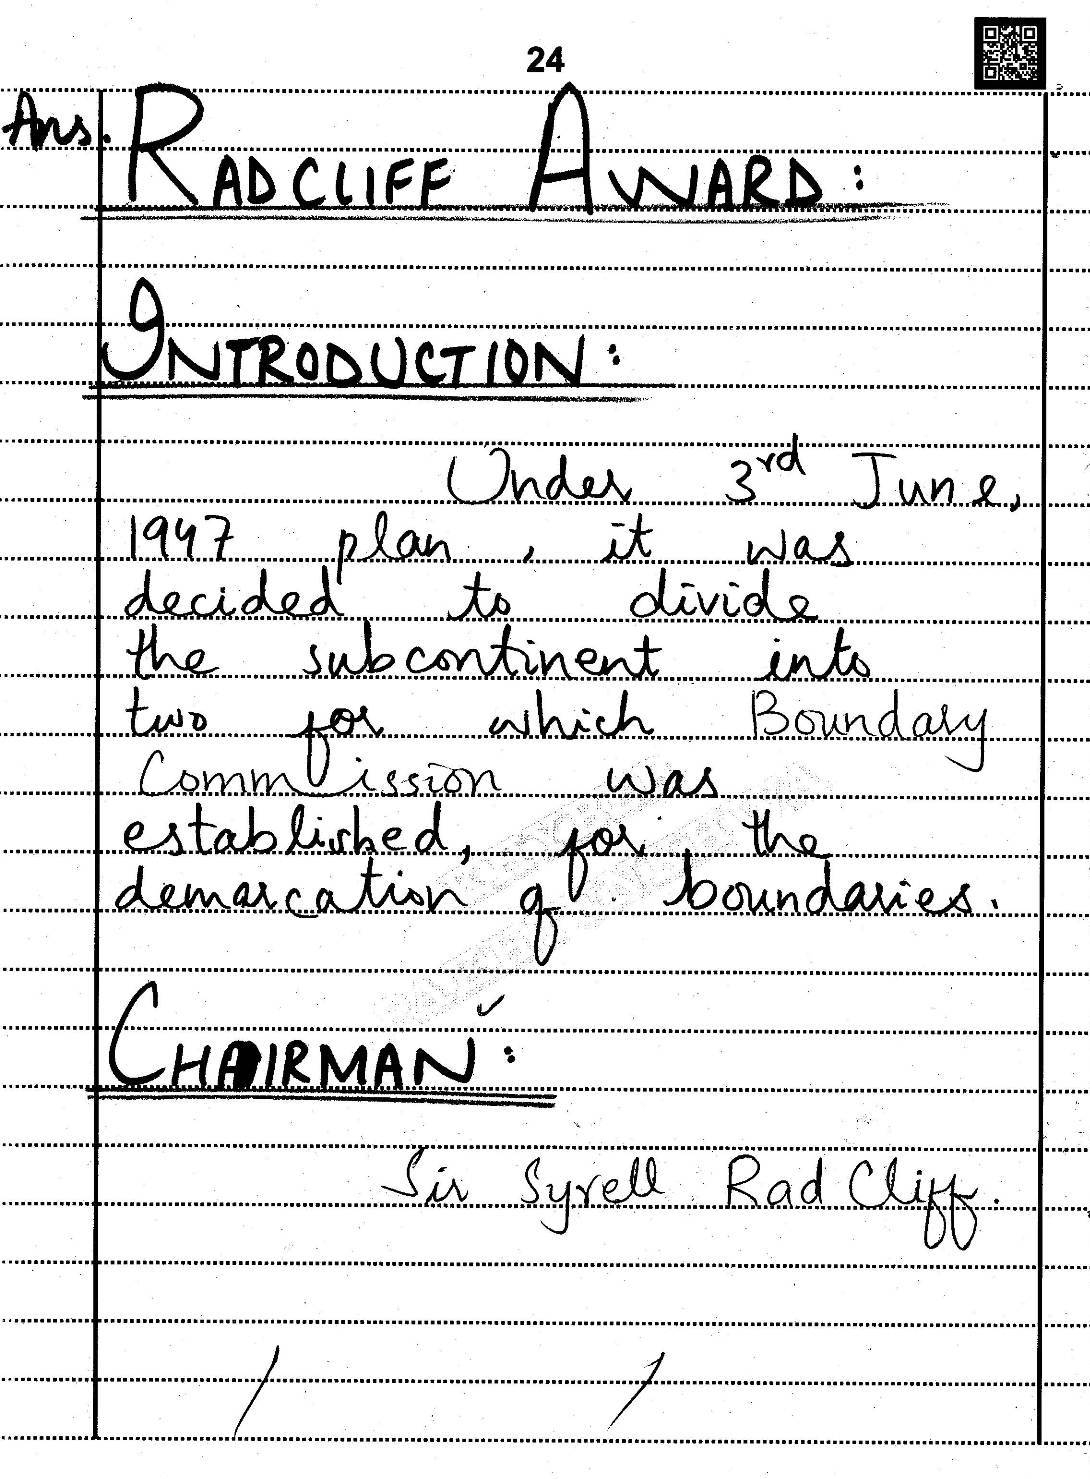 24
Ans. RADCLIFF AWARD:
INTRODUCTION:
Under 3rd June,
1947 plan, it was
decided to divide
the subcontinent into
two for which Boundary
Commission was
established, for the
demarcation of boundaries.
CHAIRMAN:
Sir Syrell RadCliff.